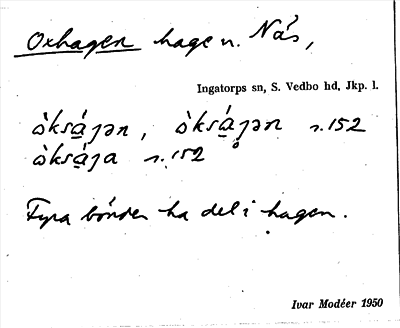 Oxhagen hage n. Näs,
Ingatorps sn, S. Vedbo hd, Jkp. l.
òksájən, òksájən s. 152
òksája s. 152
Fyra bönder ha del i hagen.
Ivar Modéer 1950